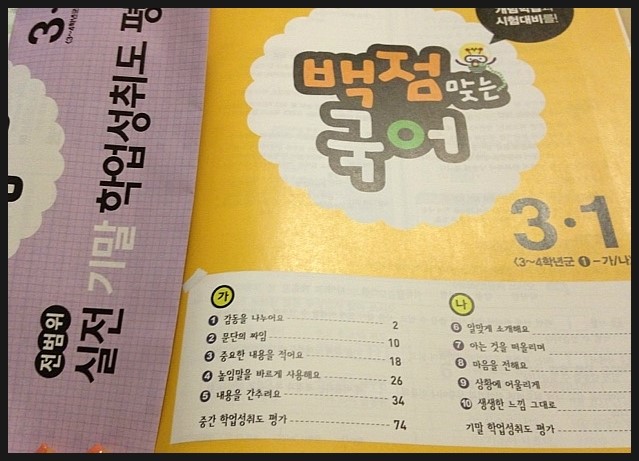 3·
〈3~4학년군
전범위
실전 기말 학업성취도 평
시험대비를!
백점 맞는
국어
3·1
〈3~4학년군 ❶-가/나
가
1 감동을 나누어요 2
2 문단의 짜임 10
3 중요한 내용을 적어요 18
4 높임말을 바르게 사용해요 26
5 내용을 간추려요 34
중간 학업성취도 평가 74
나
6 알맞게 소개해요
7 아는 것을 떠올리며
8 마음을 전해요
9 상황에 어울리게
10 생생한 느낌 그대로
기말 학업성취도 평가